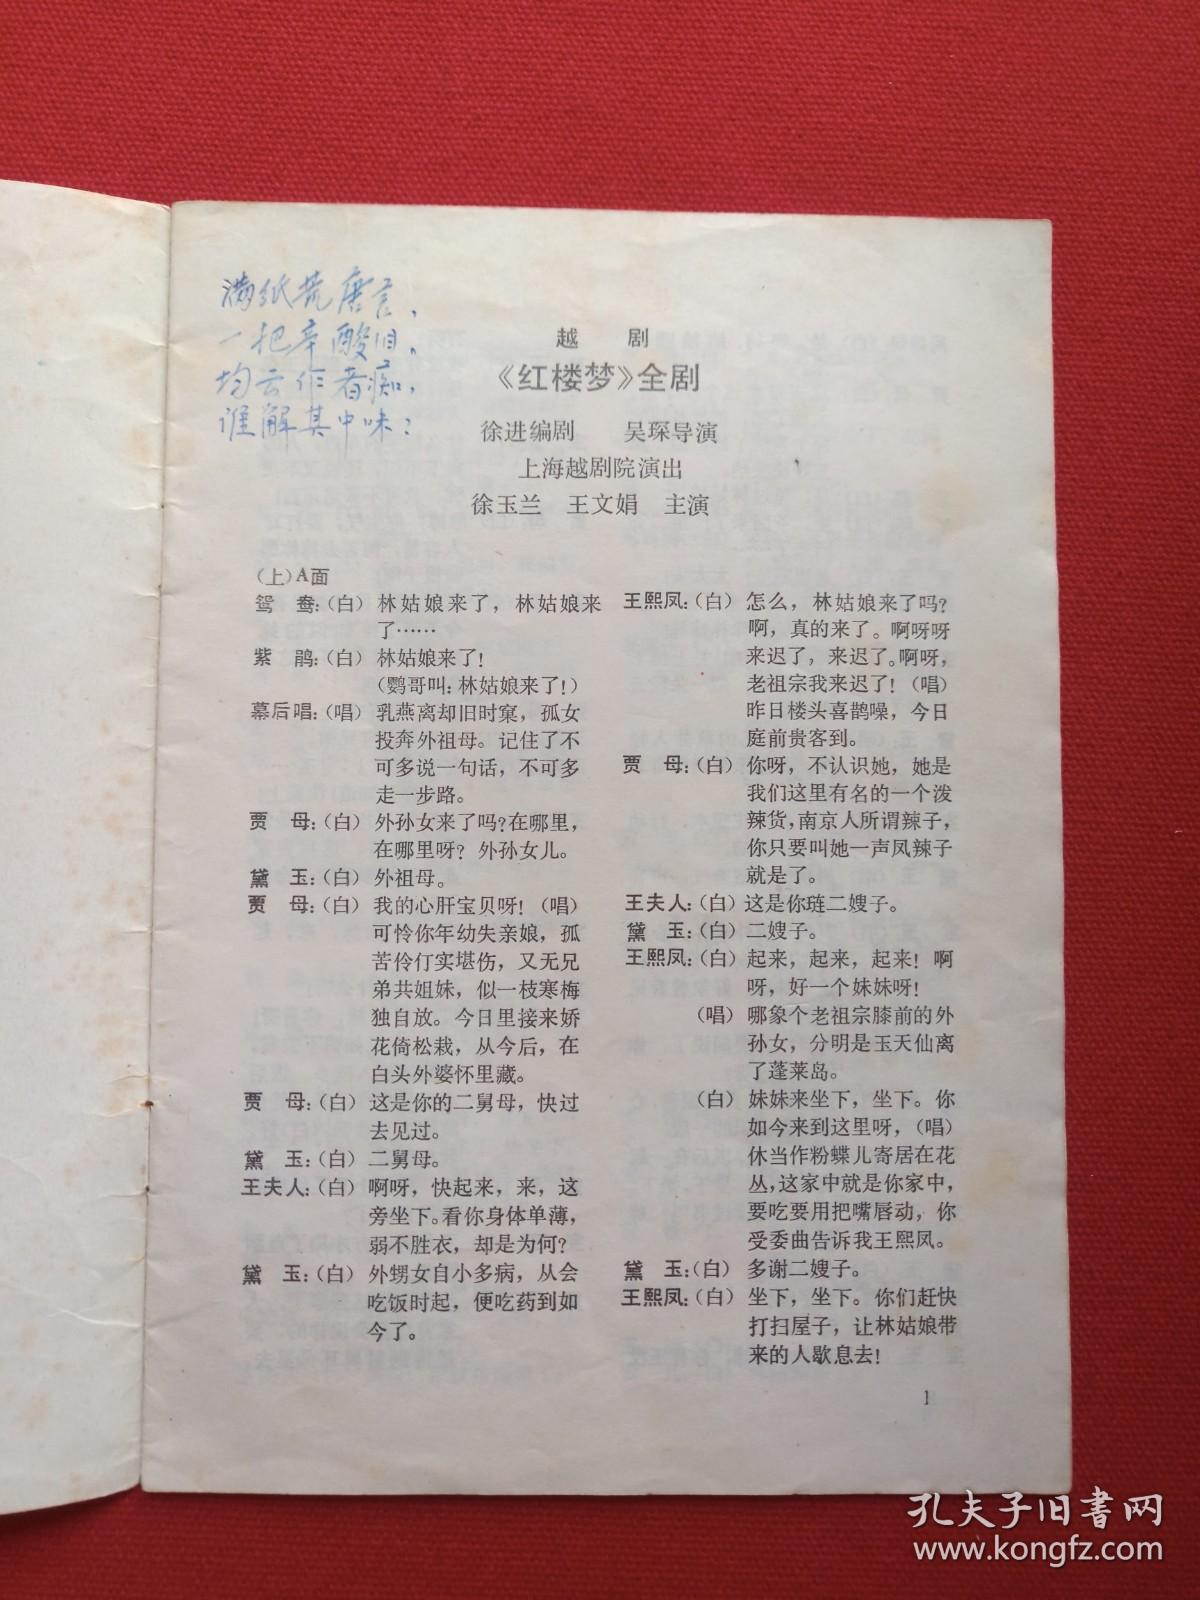 满纸荒唐言，
一把辛酸泪。
均云作者痴，
谁解其中味？
越 剧
《红楼梦》全剧
徐进编剧 吴琛导演
上海越剧院演出
徐玉兰 王文娟 主演
（上）A面
鸳 鸯：（白）林姑娘来了，林姑娘来
了……
紫 鹃：（白）林姑娘来了！
（鹦哥叫：林姑娘来了！）
幕后唱：（唱）乳燕离却旧时窠，孤女
投奔外祖母。记住了不
可多说一句话，不可多
走一步路。
贾 母：（白）外孙女来了吗？在哪里，
在哪里呀？外孙女儿。
黛 玉：（白）外祖母。
贾 母：（白）我的心肝宝贝呀！（唱）
可怜你年幼失亲娘，孤
苦伶仃实堪伤，又无兄
弟共姐妹，似一枝寒梅
独自放。今日里接来娇
花倚松栽，从今后，在
白头外婆怀里藏。
贾 母：（白）这是你的二舅母，快过
去见过。
黛 玉：（白）二舅母。
王夫人：（白）啊呀，快起来，来，这
旁坐下。看你身体单薄，
弱不胜衣，却是为何？
黛 玉：（白）外甥女自小多病，从会
吃饭时起，便吃药到如
今了。
王熙凤：（白）怎么，林姑娘来了吗？
啊，真的来了。啊呀呀
来迟了，来迟了。啊呀，
老祖宗我来迟了！（唱）
昨日楼头喜鹊噪，今日
庭前贵客到。
贾 母：（白）你呀，不认识她，她是
我们这里有名的一个泼
辣货，南京人所谓辣子，
你只要叫她一声凤辣子
就是了。
王夫人：（白）这是你琏二嫂子。
黛 玉：（白）二嫂子。
王熙凤：（白）起来，起来，起来！啊
呀，好一个妹妹呀！
（唱）哪象个老祖宗膝前的外
孙女，分明是玉天仙离
了蓬莱岛。
（白）妹妹来坐下，坐下。你
如今来到这里呀，（唱）
休当作粉蝶儿寄居在花
丛，这家中就是你家中，
要吃要用把嘴唇动，你
受委曲告诉我王熙凤。
黛 玉：（白）多谢二嫂子。
王熙凤：（白）坐下，坐下。你们赶快
打扫屋子，让林姑娘带
来的人歇息去！
1
孔夫子旧书网
www.kongfz.com